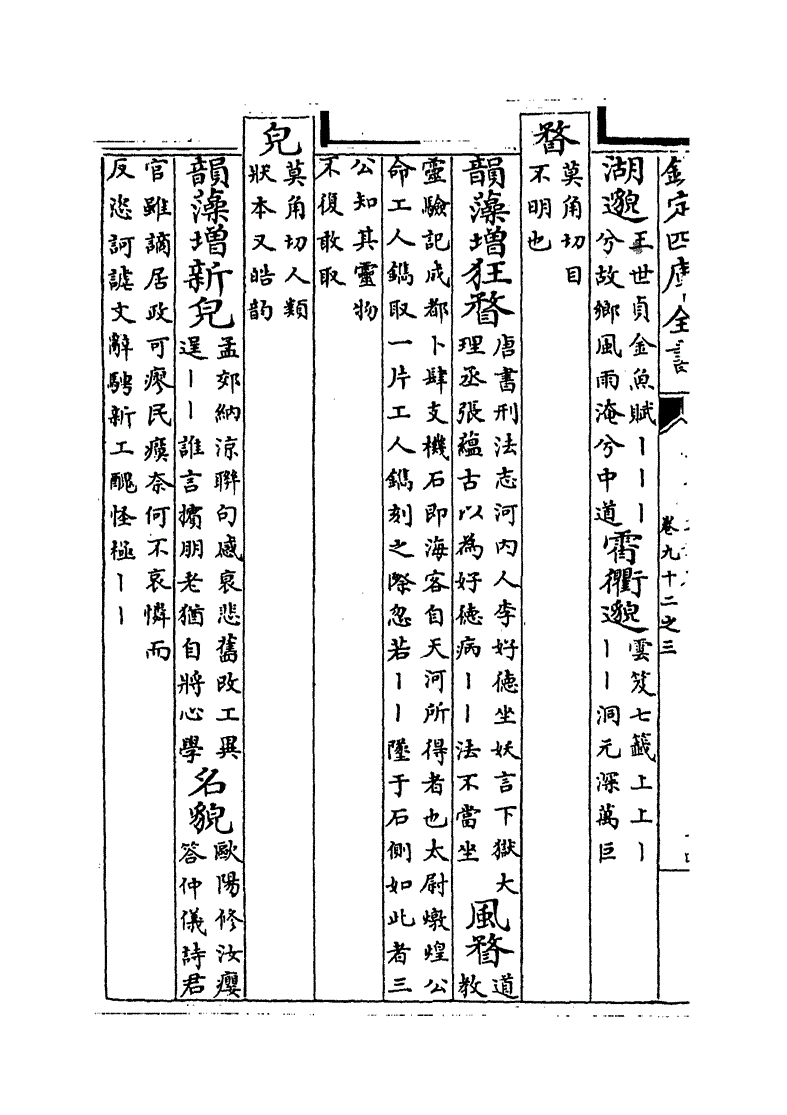 欽定四庫全書
卷九十二之三
湖邈王世貞金魚賦｜｜｜
兮故鄉風雨淹兮中道霄衢邈雲笈七籤上上｜
｜｜洞元深萬巨
瞀莫角切目
不明也
韻藻增狂瞀唐書刑法志河内人李好德坐妖言下獄大
理丞張蘊古以為好德病｜｜法不當坐風瞀道教
靈驗記成都卜肆支機石即海客自天河所得者也太尉燉煌公
命工人鐫取一片工人鐫刻之際忽若｜｜墜于石側如此者三
公知其靈物
不復敢取
皃莫角切人類
狀本又皓韵
韻藻增新皃孟郊納涼聯句感衰悲舊改工異
逞｜｜誰言擯朋老猶自將心學名貌歐陽修汝癭
答仲儀詩君
官雖謫居政可瘳民瘼奈何不哀憐而
反恣訶謔文辭騁新工醜怪極｜｜